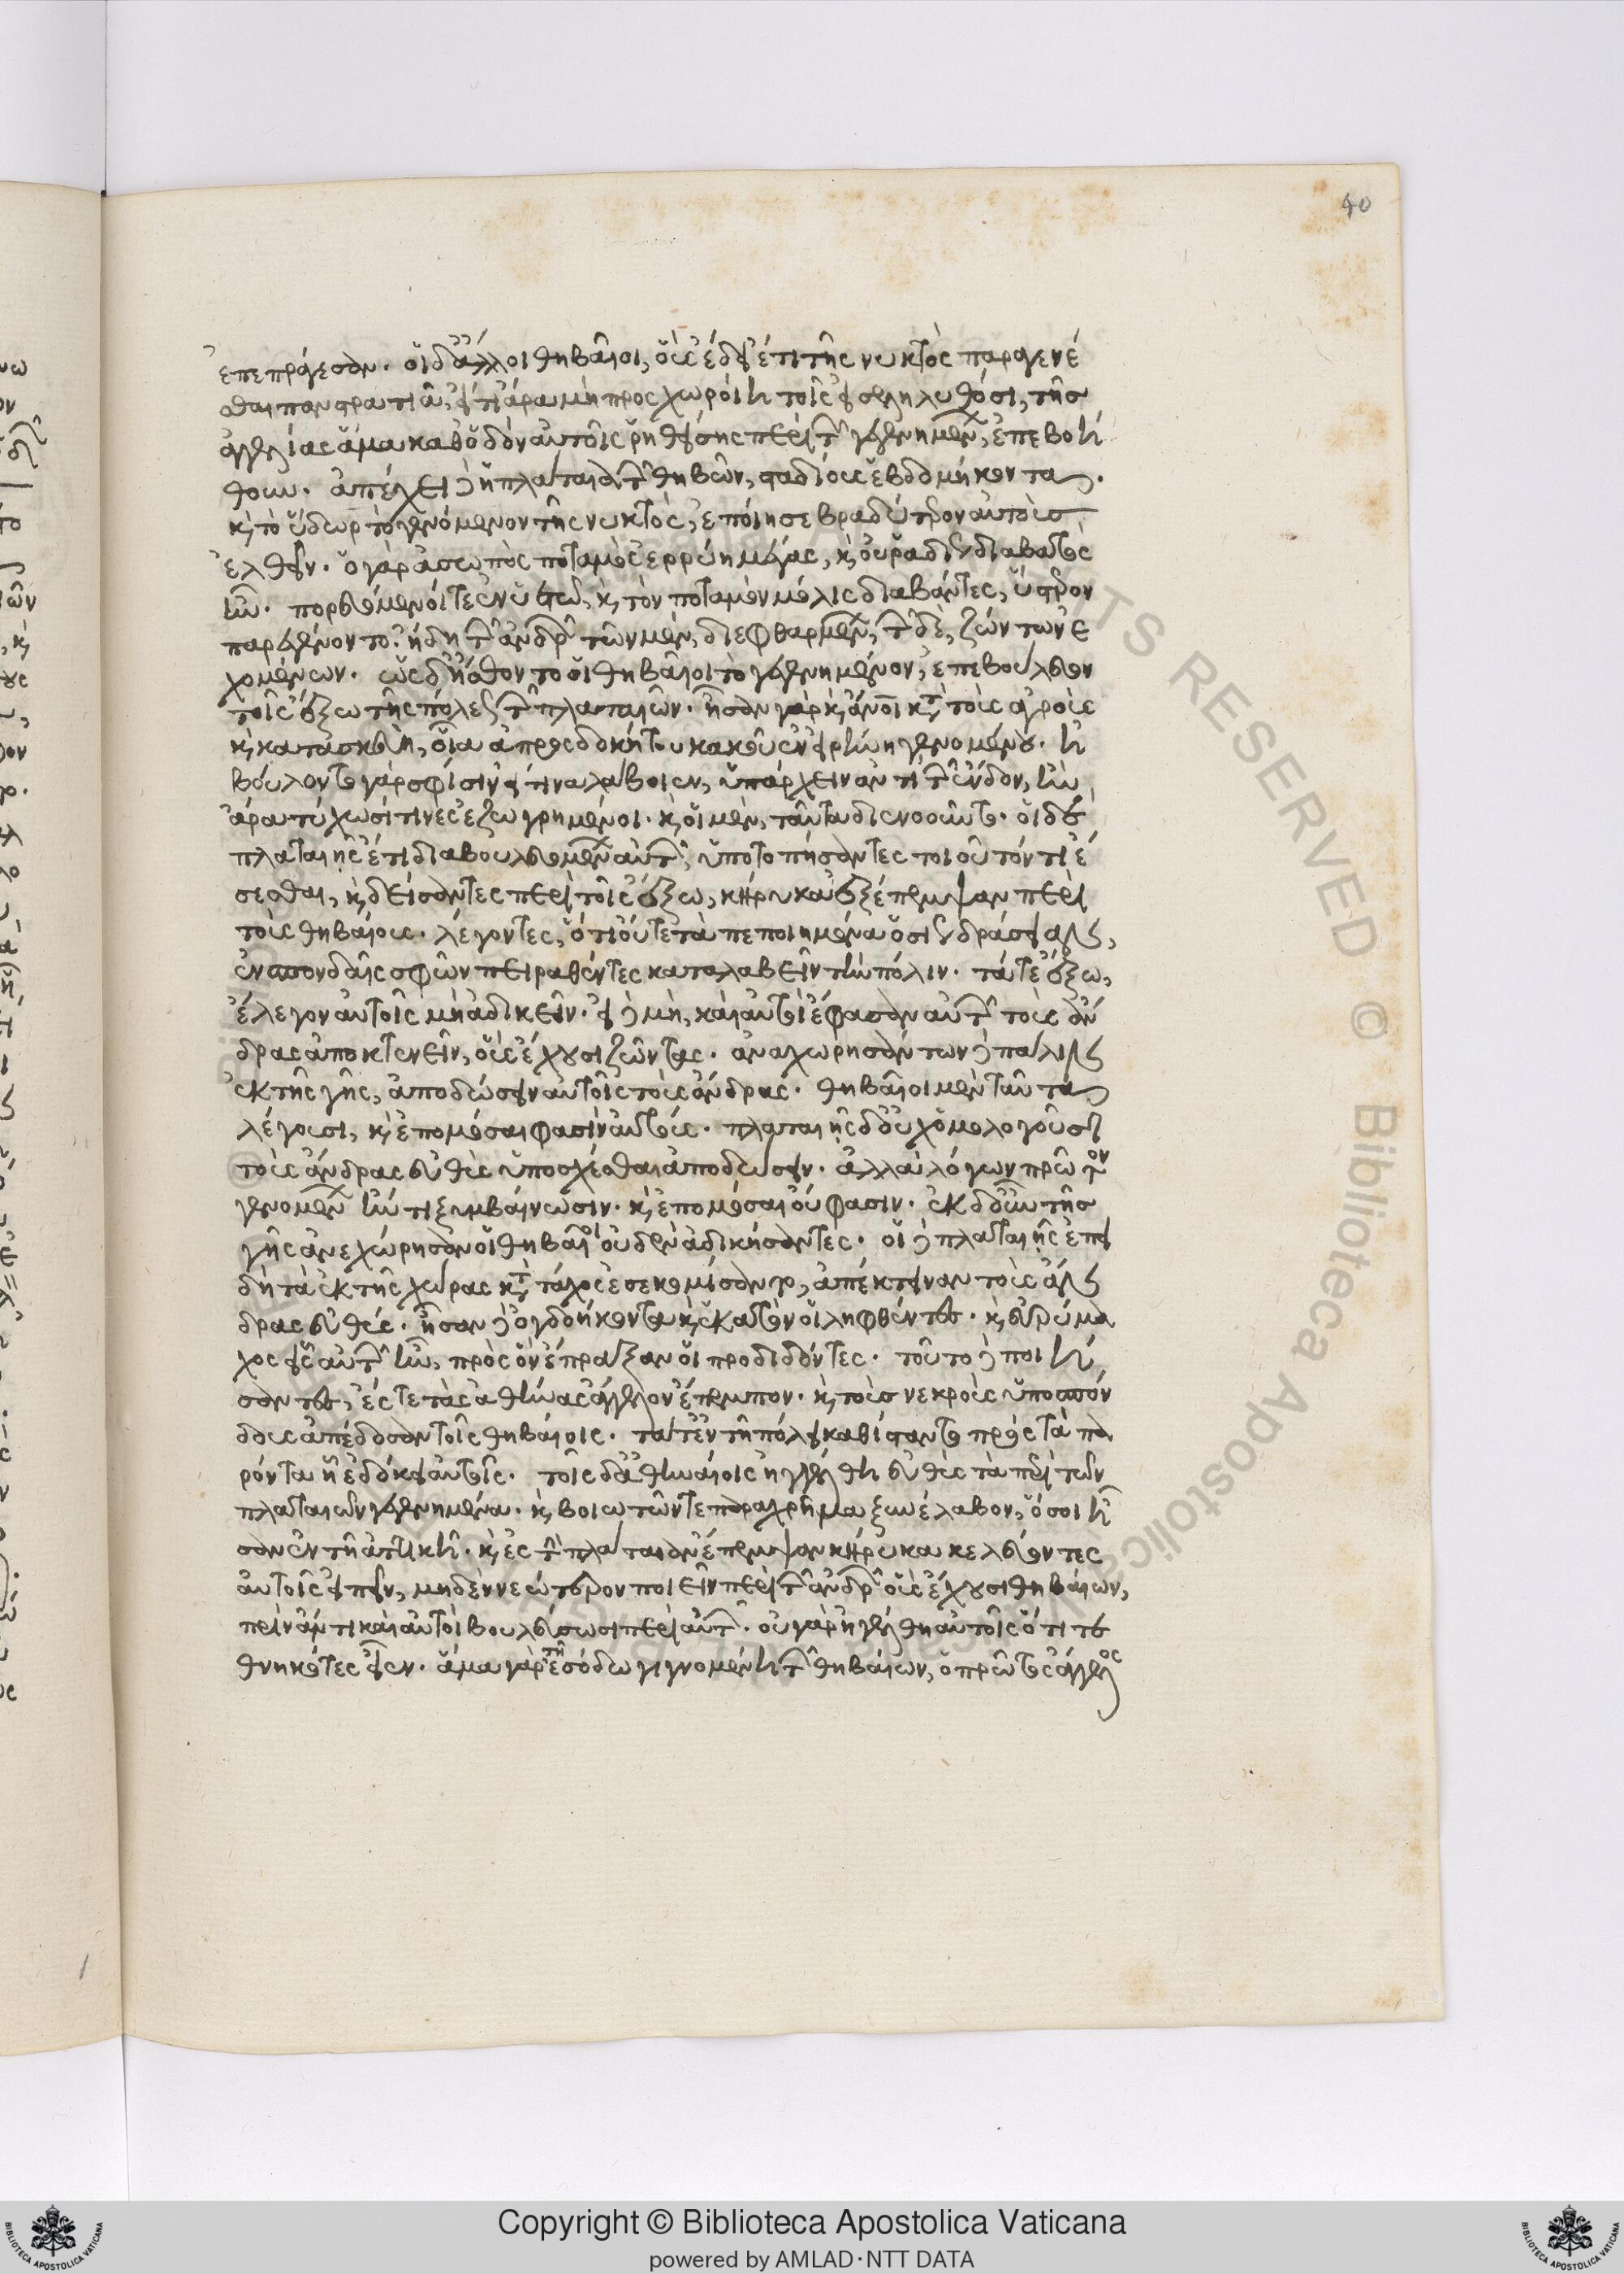 40
ἐπεπράγεσαν. οἱ δ' ἄλλοι θηβαῖοι, οὓς ἔδει ἔτι τῆς νυκτὸς παραγενέ
σθαι πανστρατιᾷ, εἴ τι ἄρα μὴ προσχωροίη τοῖς ἐσεληλυθόσι, τῆς
ἀγγελίας ἅμα καθ' ὁδὸν αὐτοῖς ῥηθείσης περὶ τῶν γεγενημένων, ἐπεβοή
θουν. ἀπέχει δὲ ἡ πλάταια τῶν θηβῶν, σταδίους ἑβδομήκοντα.
καὶ τὸ ὕδωρ τὸ γενόμενον τῆς νυκτὸς, ἐποίησε βραδύτερον αὐτοὺς
ἐλθεῖν. ὁ γὰρ ἀσωπὸς ποταμὸς ἐρρύη μέγας, καὶ οὐ ῥαδίως διαβατὸς
ἦν. πορευόμενοί τε ἐν ὑετῷ, καὶ τὸν ποταμὸν μόλις διαβάντες, ὕστερον
παρεγένοντο. ἤδη τῶν ἀνδρῶν τῶν μὲν, διεφθαρμένων, τῶν δὲ, ζώντων ἐ
χομένων. ὡς δ' ἤσθοντο οἱ θηβαῖοι τὸ γεγενημένον, ἐπεβούλευον
τοῖς ἔξω τῆς πόλεως τῶν πλαταιῶν. ἦσαν γὰρ καὶ ἄνοι κατὰ τοὺς ἀγροὺς
καὶ κατασκευὴ, οἷα ἀπροσδοκήτου κακοῦ ἐν εἰρήνῃ γενομένου. ἐ
βούλοντο γὰρ σφίσιν εἴ τινα λάβοιεν, ὑπάρχειν ἀντὶ τῶν ἔνδον, ἢν
ἄρα τύχωσί τινες ἐζωγρημένοι. καὶ οἱ μὲν, ταῦτα διενοοῦντο. οἱ δὲ
πλαταιῆς ἔτι διαβουλευομένων αὐτῶν, ὑποτοπήσαντες τοιοῦτόν τι ἔ
σεσθαι, καὶ δείσαντες περὶ τοῖς ἔξω, κήρυκα ἐξέπεμψαν περὶ
τοὺς θηβαίους. λέγοντες, ὅτι οὔτε τὰ πεποιημένα ὁσίως δράσειαν,
ἐν σπονδαῖς σφῶν πειραθέντες καταλαβεῖν τὴν πόλιν. τά τε ἔξω,
ἔλεγον αὐτοῖς μὴ ἀδικεῖν. εἰ δὲ μὴ, καὶ αὐτοὶ ἔφασαν αὐτῶν τοὺς ἄν
δρας ἀποκτενεῖν, οὓς ἔχουσι ζῶντας. ἀναχωρησάντων δὲ πάλιν
ἐκ τῆς γῆς, ἀποδώσειν αὐτοῖς τοὺς ἄνδρας. θηβαῖοι μὲν ταῦτα
λέγουσι, καὶ ἐπομόσαι φασὶν αὐτούς. πλαταιῆς δ' οὐχ ὁμολογοῦσι
τοὺς ἄνδρας εὐθὺς ὑποσχέσθαι ἀποδώσειν. ἀλλὰ λόγων πρῶτον
γενομένων ἤν τι ξυμβαίνωσιν. καὶ ἐπομόσαι οὔ φασιν. ἐκ δ' οὖν τῆς
γῆς ἀνεχώρησαν οἱ θηβαῖοι οὐδὲν ἀδικήσαντες. οἱ δὲ πλαταιῆς ἐπει
δὴ τὰ ἐκ τῆς χώρας κατὰ τάχος ἐσεκομίσαντο, ἀπέκτειναν τοὺς ἄν
δρας εὐθύς. ἦσαν δὲ ὀγδοήκοντα καὶ ἑκατὸν οἱ ληφθέντες. καὶ εὐρύμα
χος εἷς αὐτῶν ἦν, πρὸς ὃν ἔπραξαν οἱ προδιδόντες. τοῦτο δὲ ποιή
σαντες, ἔς τε τὰς ἀθήνας ἄγγελον ἔπεμπον. καὶ τοὺς νεκροὺς ὑποσπόν
δους ἀπέδοσαν τοῖς θηβαίοις. τά τ' ἐν τῇ πόλει καθίσταντο πρὸς τὰ πα
ρόντα ᾗ ἐδόκει αὐτοῖς. τοῖς δ' ἀθηναίοις ἠγγέλθη εὐθὺς τὰ περὶ τῶν
πλαταιῶν γεγενημένα. καὶ βοιωτῶν τε παραχρῆμα ξυνέλαβον, ὅσοι ἦ
σαν ἐν τῇ ἀττικῇ. καὶ ἐς τὴν πλάταιαν ἔπεμψαν κήρυκα κελεύοντες
αὐτοῖς εἰπεῖν, μηδὲν νεώτερον ποιεῖν περὶ τῶν ἀνδρῶν οὓς ἔχουσι θηβαίων,
πρὶν ἄν τι καὶ αὐτοὶ βουλεύσωσι περὶ αὐτῶν. οὐ γὰρ ἠγγέλθη αὐτοῖς ὅτι τε
θνηκότες εἶεν. ἅμα γὰρ τῇ ἐσόδῳ γιγνομένῃ τῶν θηβαίων, ὁ πρῶτος ἄγγελος
Copyright © Biblioteca Apostolica Vaticana
powered by AMLAD·NTT DATA